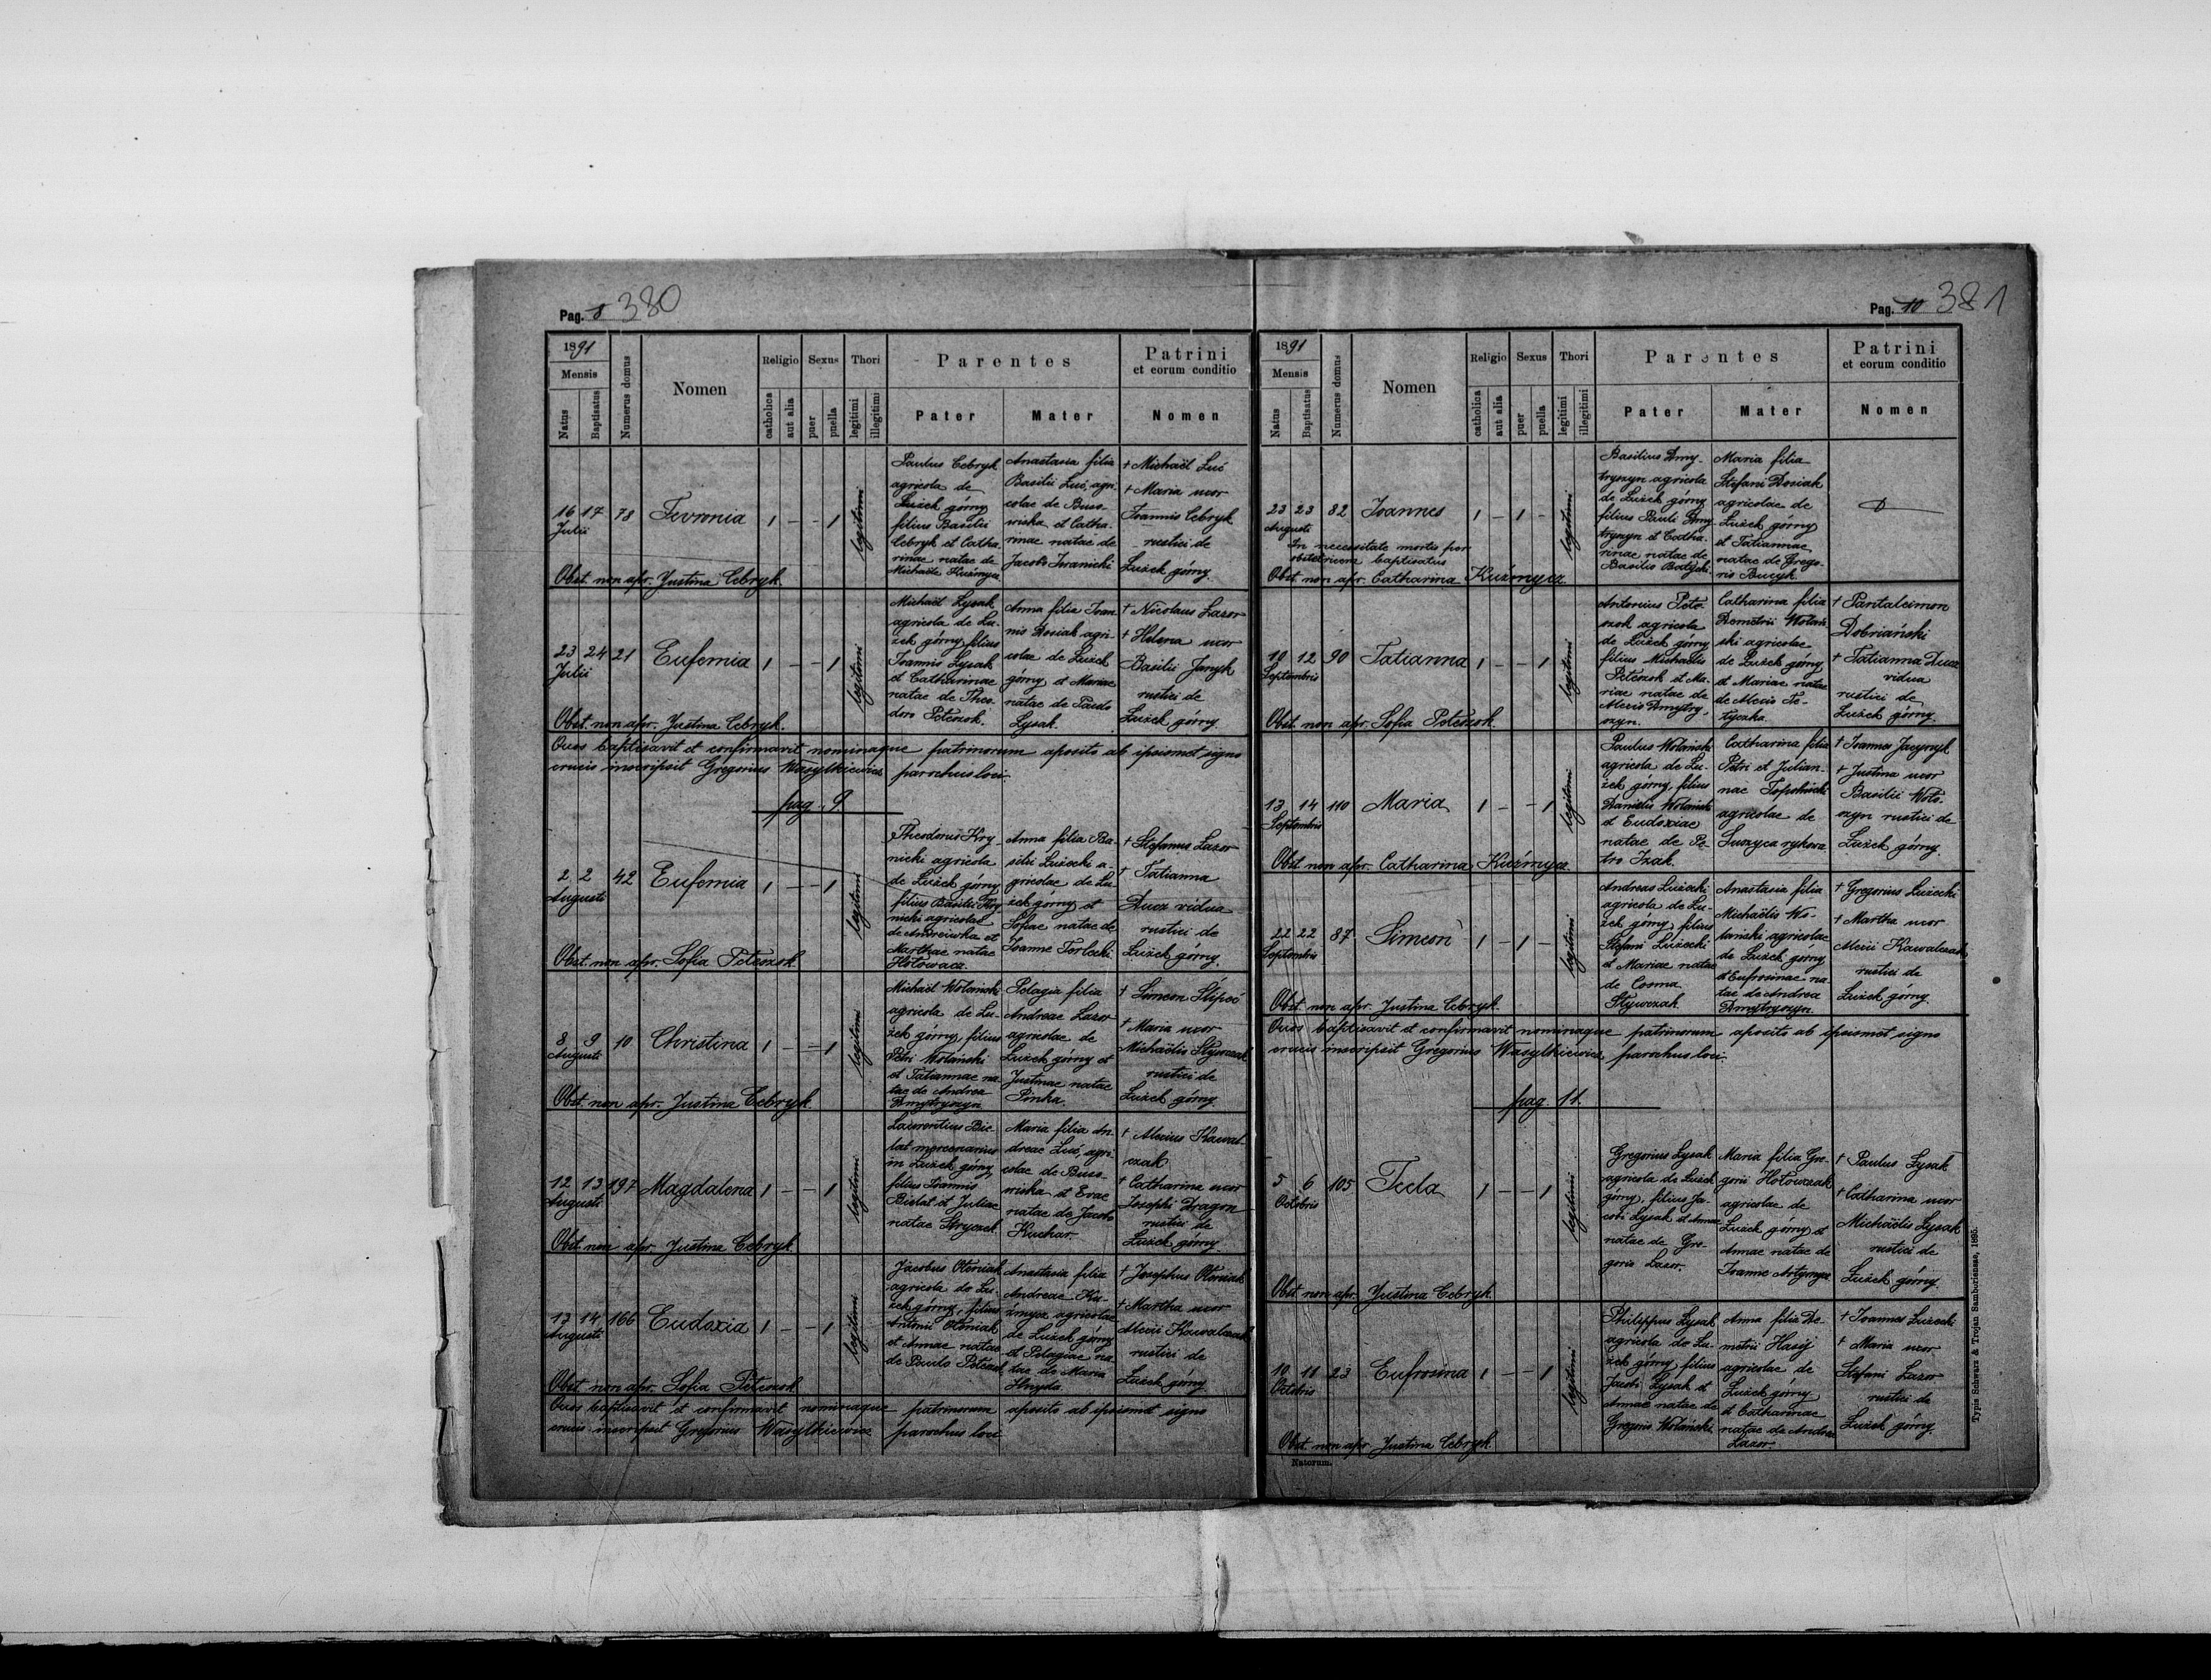 Pag. 8 380
1891
Mensis
Natus
Baptisatus
Numerus domus
Nomen
Religio
catholica
aut alia
Sexus
puer
puella
Thori
legitimi
illegitimi
Parentes
Pater
Mater
Patrini
et eorum conditio
Nomen
16 17 78 Fevronia 1 - - 1 legitimi
Julii
Paulus Cebryk
agricola de
Łużek górny
filius Basilii
Cebryk et Catha-
rinae natae de
Michaële Kuźmycz
Anastasia filia
Basilii Luć, agri-
colae de Buso-
wiska et Catha-
rinae natae de
Jacobo Iwanicki
+ Michaël Luć
+ Maria uxor
Joannis Cebryk
rustici de
Łużek górny.
Obst. non apr. Justina Cebryk.
23 24 21 Eufemia 1 - - 1 legitimi
Julii
Michaël Łysak
agricola de Łu-
żek górny, filius
Joannis Łysak
et Catharinae
natae de Theo-
doro Peteszok.
Anna filia Joan-
nis Dosiak agri-
colae de Łużek
górny et Mariae
natae de Paulo
Łysak.
+ Nicolaus Łazor
+ Helena uxor
Basilii Janyk
rustici de
Łużek górny.
Obst. non apr. Justina Cebryk.
Quos baptisavit et confirmavit nominaque patrinorum aposito ab ipsismet signo
crucis inscripsit Gregorius Wasylkiewicz parochus loci.
pag. 9
2 2 42 Eufemia 1 - - 1 legitimi
Augusti
Theodorus Kry-
nicki agricola
de Łużek górny
filius Basilii Kry-
nicki agricolae
de Andreiwka et
Marthae natae
Hołowacz.
Anna filia Ba-
silii Łużecki a-
gricolae de Łu-
żek górny et
Sofiae natae de
Joanne Torlecki
+ Stefanus Łazor
+ Tatianna
Ducz vidua
rustici de
Łużek górny.
Obst. non apr. Sofia Peteszok.
8 9 10 Christina 1 - - 1 legitimi
Augusti
Michaël Wolański
agricola de Łu-
żek górny, filius
Petri Wolański
et Tatiannae na-
tae de Andrea
Dmytryszyn
Pelagia filia
Andreae Łazor
agricolae de
Łużek górny et
Justinae natae
Pinka.
+ Simeon Slipeć
+ Maria uxor
Michaëlis Stywczak
rustici de
Łużek górny.
Obst. non apr. Justina Cebryk.
12 13 197 Magdalena 1 - - 1 legitimi
Augusti
Laurentius Bie-
lat mercenarius
in Łużek górny,
filius Joannis
Bielat et Juliae
natae Stryczek.
Maria filia An-
dreae Luć, agri-
colae de Buso-
wiska et Evae
natae de Jacobo
Kuchar.
+ Alexius Kawal-
czak
+ Catharina uxor
Josephi Dragon
rustici de
Łużek górny
Obst. non apr. Justina Cebryk.
13 14 166 Eudoxia 1 - - 1 legitimi
Augusti
Jacobus Oleniak
agricola de Łu-
żek górny, filius
Antonii Oleniak
et Annae natae
de Paulo Peteszok
Anastasia filia
Andreae Ku-
źmycz agricolae
de Łużek górny
et Pelagiae na-
tae de Maria
Hnyda.
+ Josephus Oleniak
+ Martha uxor
Alexii Kawalczak
rustici de
Łużek górny.
Obst. non apr. Sofia Peteszok
Quos baptisavit et confirmavit nominaque patrinorum aposito ab ipsismet signo
crucis inscripsit Gregorius Wasylkiewicz parochus loci
Pag. 10 381
1891
Mensis
Natus
Baptisatus
Numerus domus
Nomen
Religio
catholica
aut alia
Sexus
puer
puella
Thori
legitimi
illegitimi
Parentes
Pater
Mater
Patrini
et eorum conditio
Nomen
23 23 82 Joannes 1 - 1 - legitimi
Augusti
In necessitate mortis per
obstetricem baptisatus
Basilius Dmy-
tryszyn agricola
de Łużek górny
filius Pauli Dmy-
tryszyn et Catha-
rinae natae de
Basilio Batycki.
Maria filia
Stefani Dosiak
agricolae de
Łużek górny
et Tatiannae
natae de Grego-
rio Bucyk.
Obst. non apr. Catharina Kuźmycz.
10 12 90 Tatianna 1 - - 1 legitimi
Septembris
Antonius Pete-
szok agricola
de Łużek górny
filius Michaëlis
Peteszok et Ma-
riae natae de
Alexio Dmytry-
szyn.
Catharina filia
Demetrii Wolań-
ski agricolae
de Łużek górny
et Mariae natae
de Alexio Te-
tyczka.
+ Pantaleimon
Dobriański
+ Tatianna Ducz
vidua
rustici de
Łużek górny.
Obst. non apr. Sofia Peteszok.
13 14 110 Maria 1 - - 1 legitimi
Septembris
Paulus Wolański
agricola de Łu-
żek górny, filius
Danielis Wolański
et Eudoxiae
natae de Pe-
tro Izak.
Catharina filia
Petri et Julian-
nae Topolnicki
agricolae de
Suszyca rykowa
+ Joannes Jacynyk
+ Justina uxor
Basilii Woło-
szyn rustici de
Łużek górny.
Obst. non apr. Catharina Kuźmycz.
22 22 87 Simeon 1 - 1 - legitimi
Septembris
Andreas Łużecki
agricola de Łu-
żek górny, filius
Stefani Łużecki
et Mariae natae
de Cosma
Stywczak
Anastasia filia
Michaëlis Wo-
lański agricolae
de Łużek górny
et Eufrosinae na-
tae de Andrea
Dmytryszyn.
+ Gregorius Łużecki
+ Martha uxor
Alexii Kawalczak
rustici de
Łużek górny.
Obst. non apr. Justina Cebryk.
Quos baptisavit et confirmavit nominaque patrinorum aposito ab ipsismet signo
crucis inscripsit Gregorius Wasylkiewicz, parochus loci.
pag. 11.
5 6 105 Tecla 1 - - 1 legitimi
Octobris
Gregorius Łysak
agricola de Łużek
górny, filius Ja-
cobi Łysak et Annae
natae de Gre-
gorio Łazor.
Maria filia Gre-
gorii Hołowczak
agricolae de
Łużek górny et
Annae natae de
Joanne Artymycz
+ Paulus Łysak
+ Catharina uxor
Michaëlis Łysak
rustici de
Łużek górny.
Obst. non apr. Justina Cebryk.
10 11 23 Eufrosina 1 - - 1 legitimi
Octobris
Philippus Łysak
agricola de Łu-
żek górny, filius
Jacobi Łysak et
Annae natae de
Gregorio Wolański.
Anna filia De-
metrii Hasij
agricolae de
Łużek górny
et Catharinae
natae de Andrea
Łazor
+ Joannes Łużecki
+ Maria uxor
Stefani Łazor
rustici de
Łużek górny.
Obst. non apr. Justina Cebryk.
Natorum.
Typis Schwarz & Trojan Samboriense, 1895.